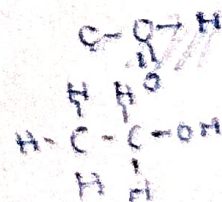 C-C-H
O
H H
H-C-C-OH
H H